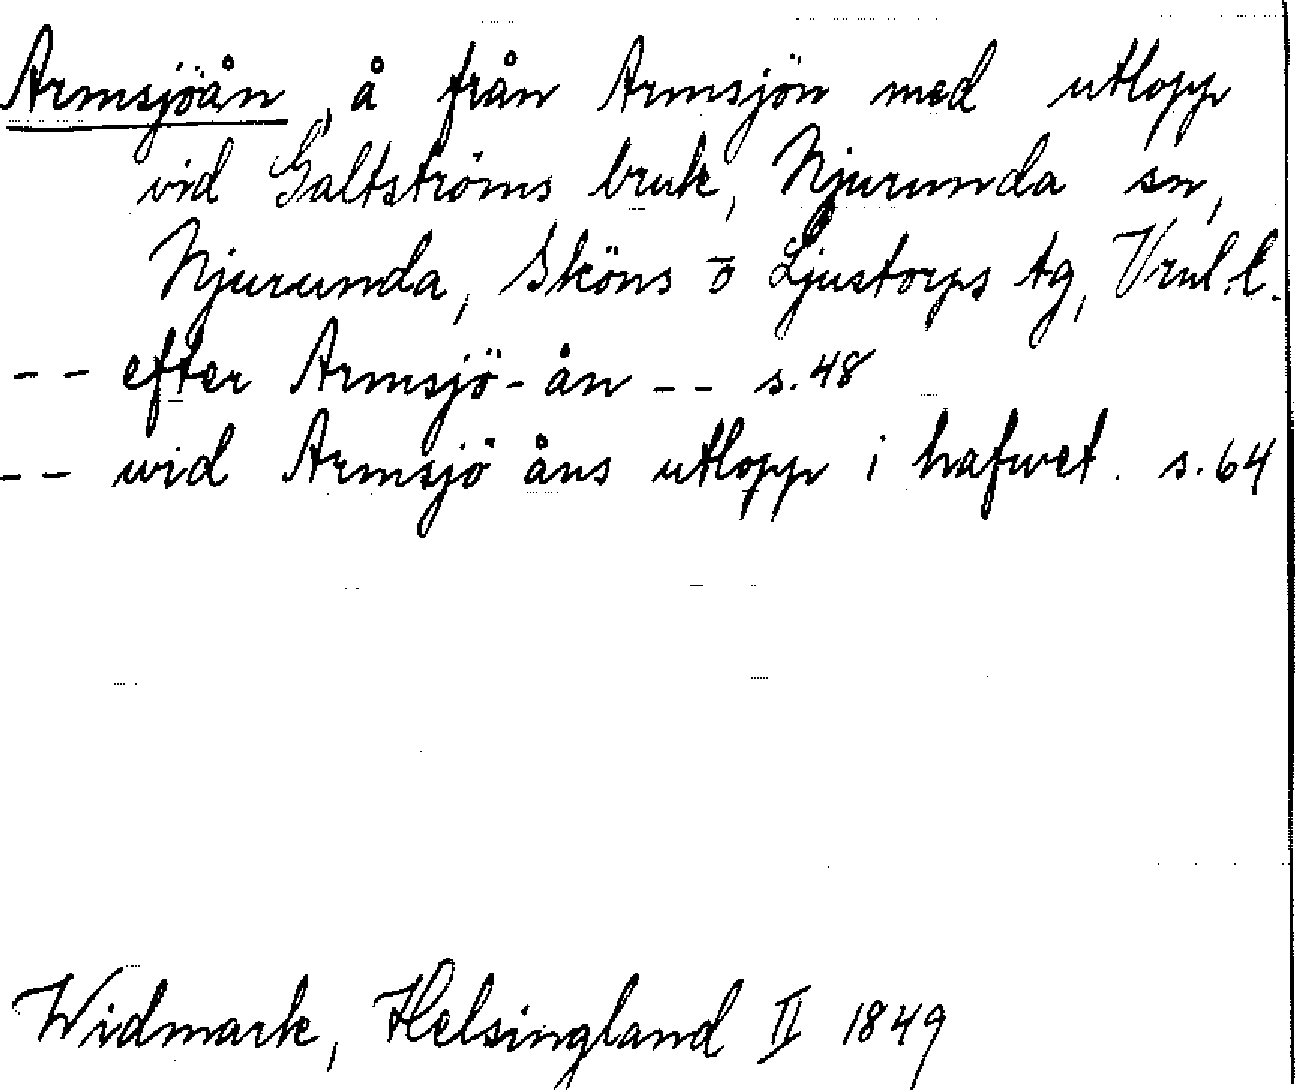 Armsjöån, å från Armsjön med utlopp
vid Galtströms bruk, Njurunda sn,
Njurunda, Sköns o Ljustorps tg, Vnl. l.
-- efter Armsjö-ån -- s. 48
-- wid Armsjö åns utlopp i hafwet. s. 64
Widmark, Helsingland II 1849